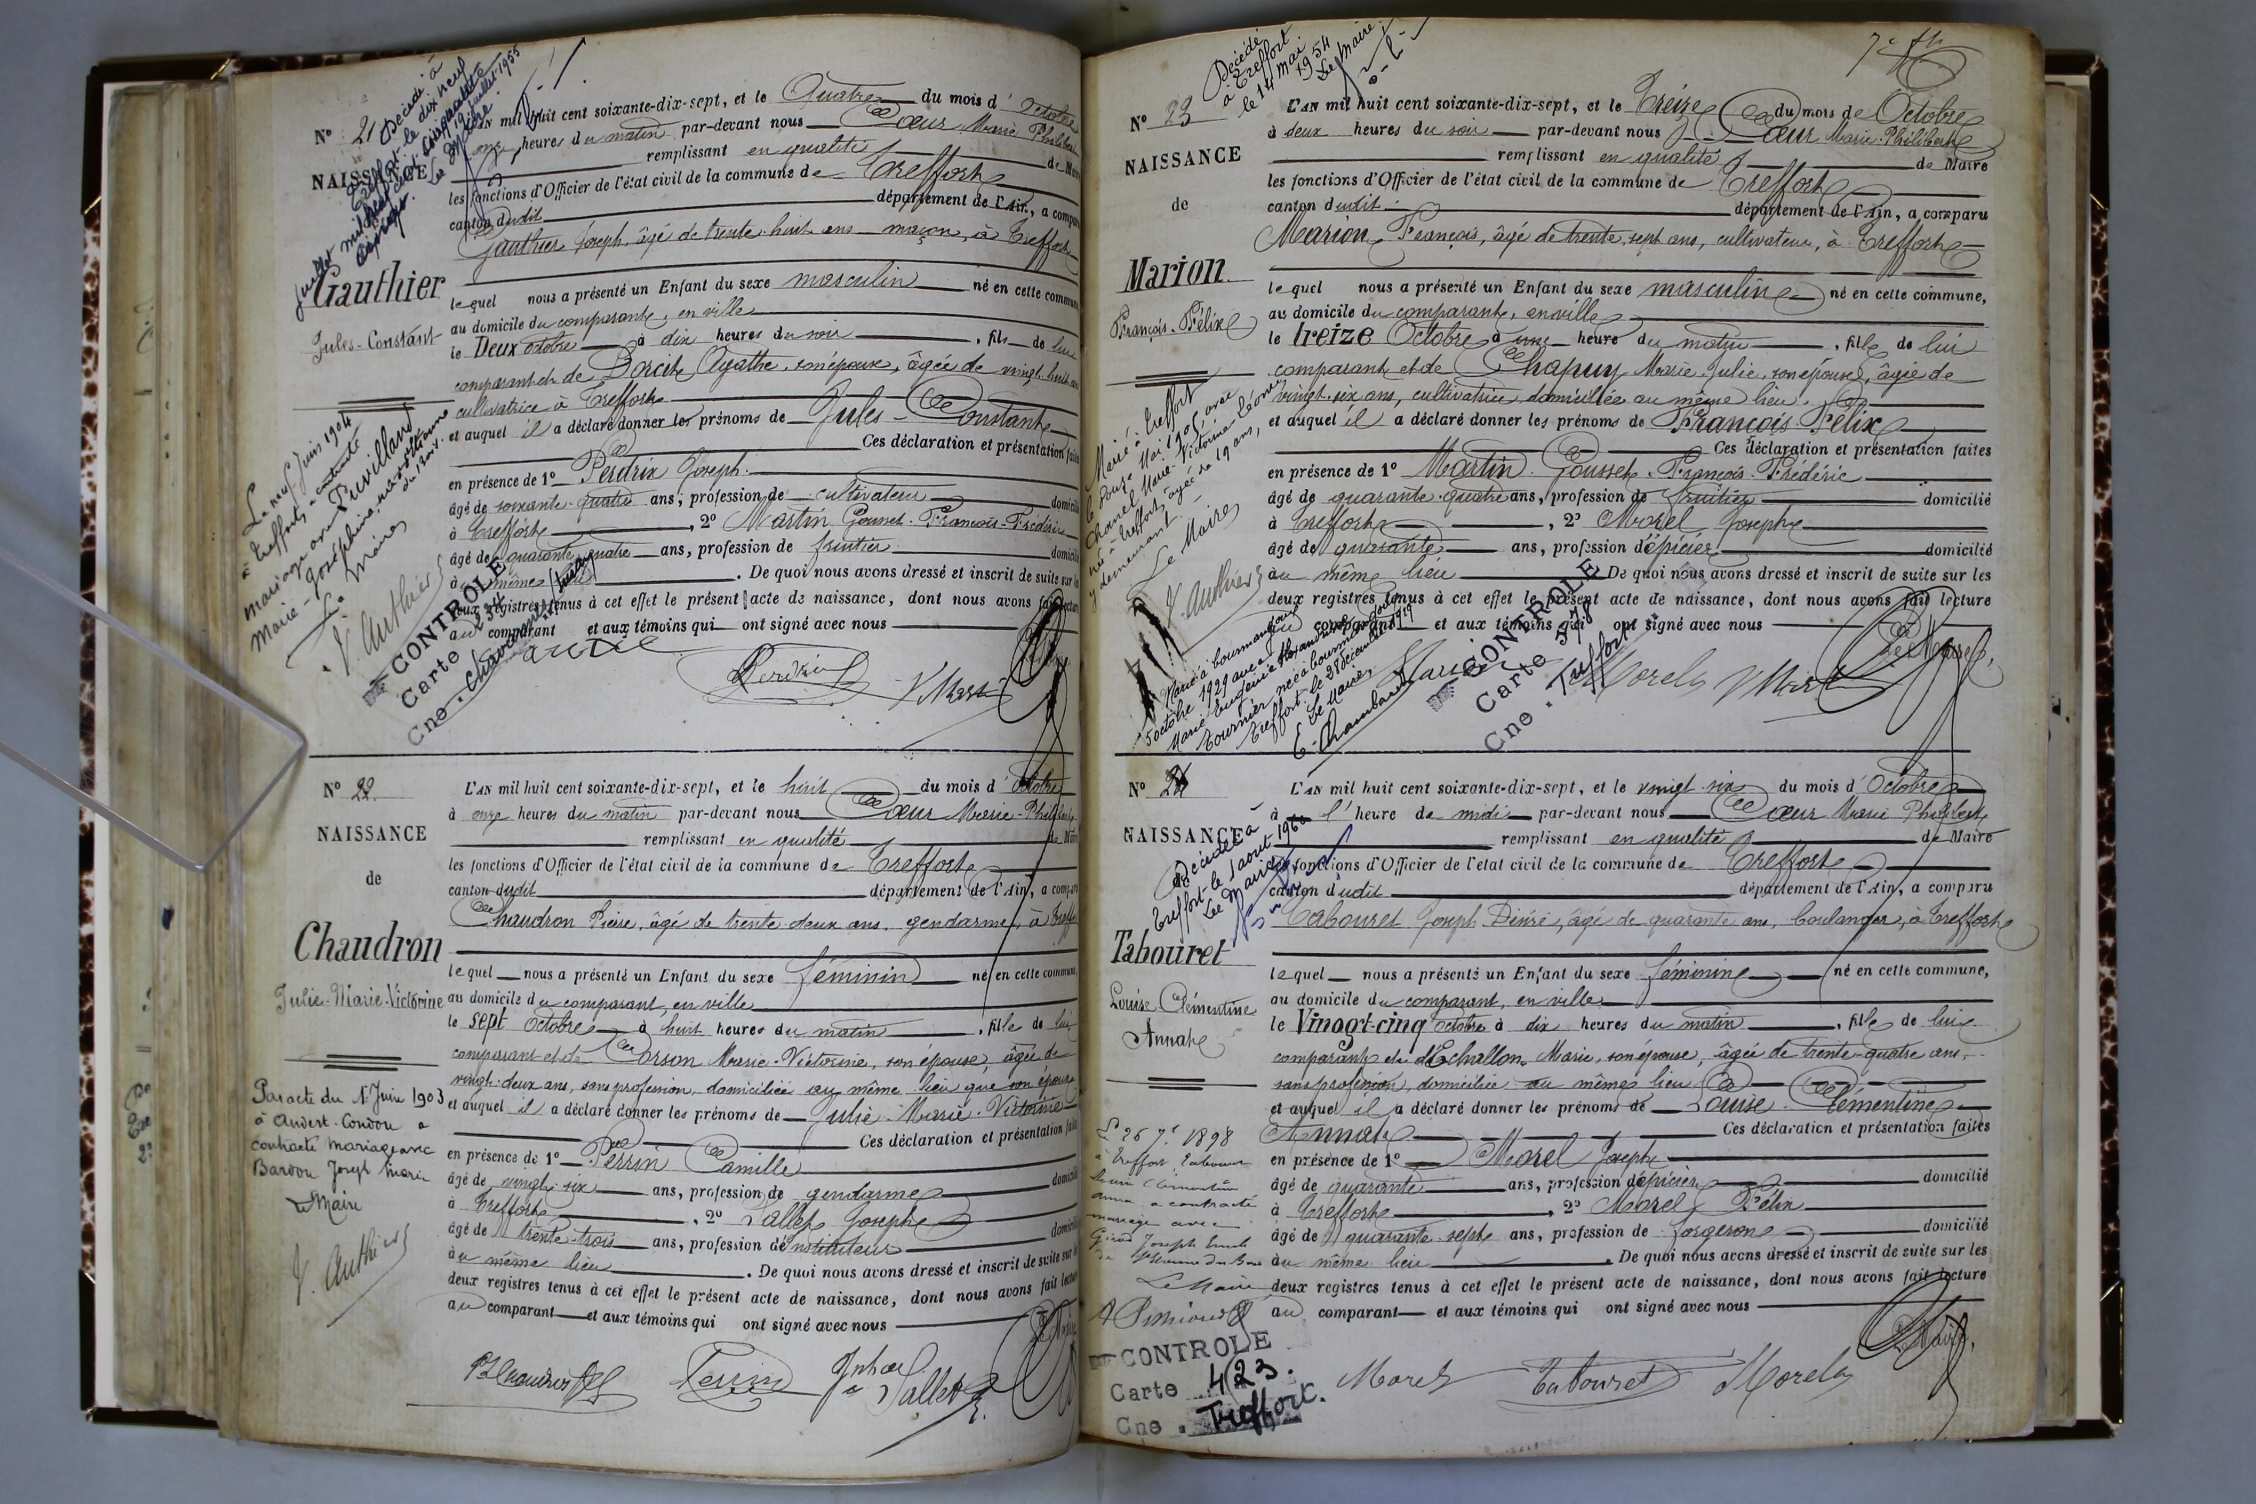 N° 21
NAISSANCE
Gauthier
Jules-Constant
Décédé à
Treffort le dix neuf
juillet mil neuf cent cinquante
Le 19 juillet 1955
Le Maire
L'AN mil huit cent soixante-dix-sept, et le Quatre du mois d'octobre
onze heures du matin par-devant nous Cœur Marie Philibert
remplissant en qualité de Maire
les fonctions d'Officier de l'état civil de la commune de Treffort
canton dudit département de l'Ain, a comparu
Gauthier Joseph, âgé de trente-huit ans maçon, à Treffort
lequel nous a présenté un Enfant du sexe masculin né en cette commune
au domicile du comparant, en ville
le Deux octobre à dix heures du soir, fils de lui
comparant et de Agathe, son épouse, âgée de vingt-huit ans
cultivatrice à Treffort
et auquel il a déclaré donner les prénoms de Jules-Constant
Ces déclaration et présentation faites
en présence de 1° Perdrix Joseph
âgé de soixante-quatre ans, profession de cultivateur domicilié
à Treffort, 2° Martin Gousset François-Frédéric
âgé de quarante quatre ans, profession de fruitier domicilié
au même lieu. De quoi nous avons dressé et inscrit de suite sur les
deux registres tenus à cet effet le présent acte de naissance, dont nous avons fait lecture
au comparant et aux témoins qui ont signé avec nous
Le neuf Juin 1904
à Treffort, a contracté
mariage avec Puvilland
Marie-Joséphine,
Le Maire
J. Authier
CONTROLE
Carte 234
Cne. Chavannes s/Suran
Perdrix
N° 22
NAISSANCE
de
Chaudron
Julie-Marie-Victorine
L'AN mil huit cent soixante-dix-sept, et le huit du mois d'octobre
à onze heures du matin par-devant nous Cœur Marie-Philibert
remplissant en qualité de Maire
les fonctions d'Officier de l'état civil de la commune de Treffort
canton dudit département de l'Ain, a comparu
Chaudron Pierre, âgé de trente-deux ans, gendarme, à Treffort
lequel nous a présenté un Enfant du sexe féminin né en cette commune,
au domicile du comparant, en ville
le sept octobre à huit heures du matin, fille de lui
comparant et de Corson Marie-Victorine, son épouse, âgée de
vingt-deux ans, sans profession, domiciliée au même lieu que son époux
et auquel il a déclaré donner les prénoms de Julie-Marie-Victorine
Ces déclaration et présentation faites
en présence de 1° Perrin Camille
âgé de vingt-six ans, profession de gendarme domicilié
à Treffort, 2° Vallet Joseph
âgé de trente-trois ans, profession d'instituteur domicilié
au même lieu. De quoi nous avons dressé et inscrit de suite sur les
deux registres tenus à cet effet le présent acte de naissance, dont nous avons fait lecture
au comparant et aux témoins qui ont signé avec nous
Par acte du 1er Juin 1903
à Andert-Condon a
contracté mariage avec
Bardou Joseph Marie
Le Maire
J. Authier
Chaudron
Perrin
Vallet
N° 23
NAISSANCE
de
Marion
François-Félix
Décédé
à Treffort
le 14 mai 1954
Le Maire
L'AN mil huit cent soixante-dix-sept, et le Treize du mois de Octobre
à deux heures du soir par-devant nous Cœur Marie-Philibert
remplissant en qualité de Maire
les fonctions d'Officier de l'état civil de la commune de Treffort
canton dudit département de l'Ain, a comparu
Marion François, âgé de trente-sept ans, cultivateur, à Treffort
lequel nous a présenté un Enfant du sexe masculin né en cette commune,
au domicile du comparant, en ville
le treize Octobre à une heure du matin, fils de lui
comparant et de Chapuy Marie-Julie, son épouse, âgée de
vingt-six ans, cultivatrice domiciliée au même lieu.
et auquel il a déclaré donner les prénoms de François-Félix
Ces déclaration et présentation faites
en présence de 1° Martin Gousset François-Frédéric
âgé de quarante-quatre ans, profession de fruitier domicilié
à Treffort, 2° Morel Joseph
âgé de quarante ans, profession d'épicier domicilié
au même lieu De quoi nous avons dressé et inscrit de suite sur les
deux registres tenus à cet effet le présent acte de naissance, dont nous avons fait lecture
au comparant et aux témoins qui ont signé avec nous
Marié à Treffort
le douze Mai 1906, avec
Chanel Marie-Victorine Léonie
née à Treffort, y demeurant, âgée de 19 ans,
Le Maire
J. Authier
Marié à Cournangoux
5 octobre 1929 avec
Marie Eugénie Alexandrine
Tournier née à Cournangoux
Treffort le 28 décembre 1929
Le Maire,
E. Chambard
CONTROLE
Carte 578
Cne. Treffort
Marion
Morel
Le Maire,
N° 24
NAISSANCE
Tabouret
Louise-Clémentine
Anna
Décédée à
Treffort le 1 août 1960
Le Maire
L'AN mil huit cent soixante-dix-sept, et le vingt-six du mois d'Octobre
à l'heure de midi par-devant nous Cœur Marie Philibert
remplissant en qualité de Maire
les fonctions d'Officier de l'état civil de la commune de Treffort
canton dudit département de l'Ain, a comparu
Tabouret Joseph Désiré, âgé de quarante ans, boulanger, à Treffort
lequel nous a présenté un Enfant du sexe féminin né en cette commune,
au domicile du comparant, en ville
le Vingt-cinq octobre à dix heures du matin, fille de lui
comparant et d'Echallon Marie, son épouse, âgée de trente-quatre ans,
sans profession, domiciliée au même lieu
et auquel il a déclaré donner les prénoms de Louise-Clémentine
Anna Ces déclaration et présentation faites
en présence de 1° Morel Joseph
âgé de quarante ans, profession d'épicier domicilié
à Treffort, 2° Morel Félix
âgé de quarante-sept ans, profession de forgeron domicilié
au même lieu. De quoi nous avons dressé et inscrit de suite sur les
deux registres tenus à cet effet le présent acte de naissance, dont nous avons fait lecture
au comparant et aux témoins qui ont signé avec nous
Le 26 7e 1898
à Treffort Tabouret
Louise Clémentine
Anna a contracté
mariage avec
Joseph
Le Maire
CONTROLE
Carte 423.
Cne. Treffort.
Morel
Tabouret
Morel
Le Maire,